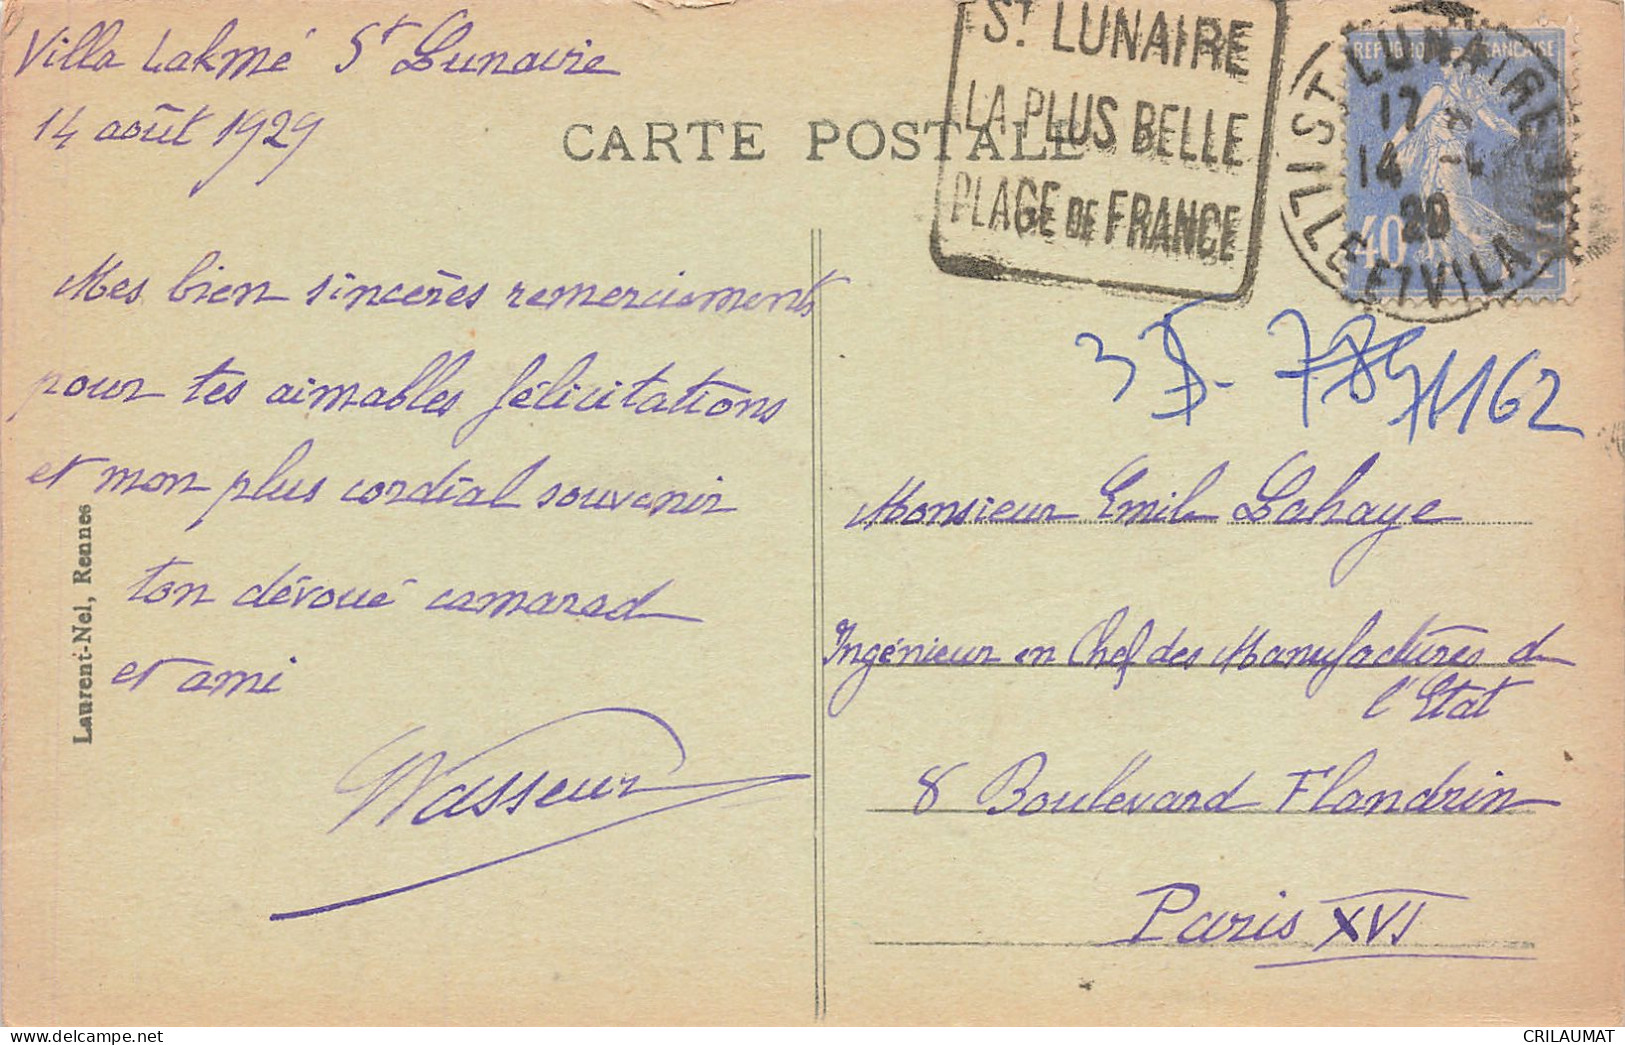 Villa Lakmé St Lunaire
14 août 1929
CARTE POSTALE
Mes bien sincères remerciements
pour tes aimables félicitations
et mon plus cordial souvenir
ton dévoué camarad
et ami
Wasseur
Laurent-Nel, Rennes
ST LUNAIRE
LA PLUS BELLE
PLAGE DE FRANCE
REPUBLIQUE FRANÇAISE
40
ST LUNAIRE
ILLE ET VILAINE
17
14
Monsieur Emile Lahaye
Ingénieur en Chef des Manufactures de
l'Etat
8 Boulevard Flandrin
Paris XVI
CRILAUMAT